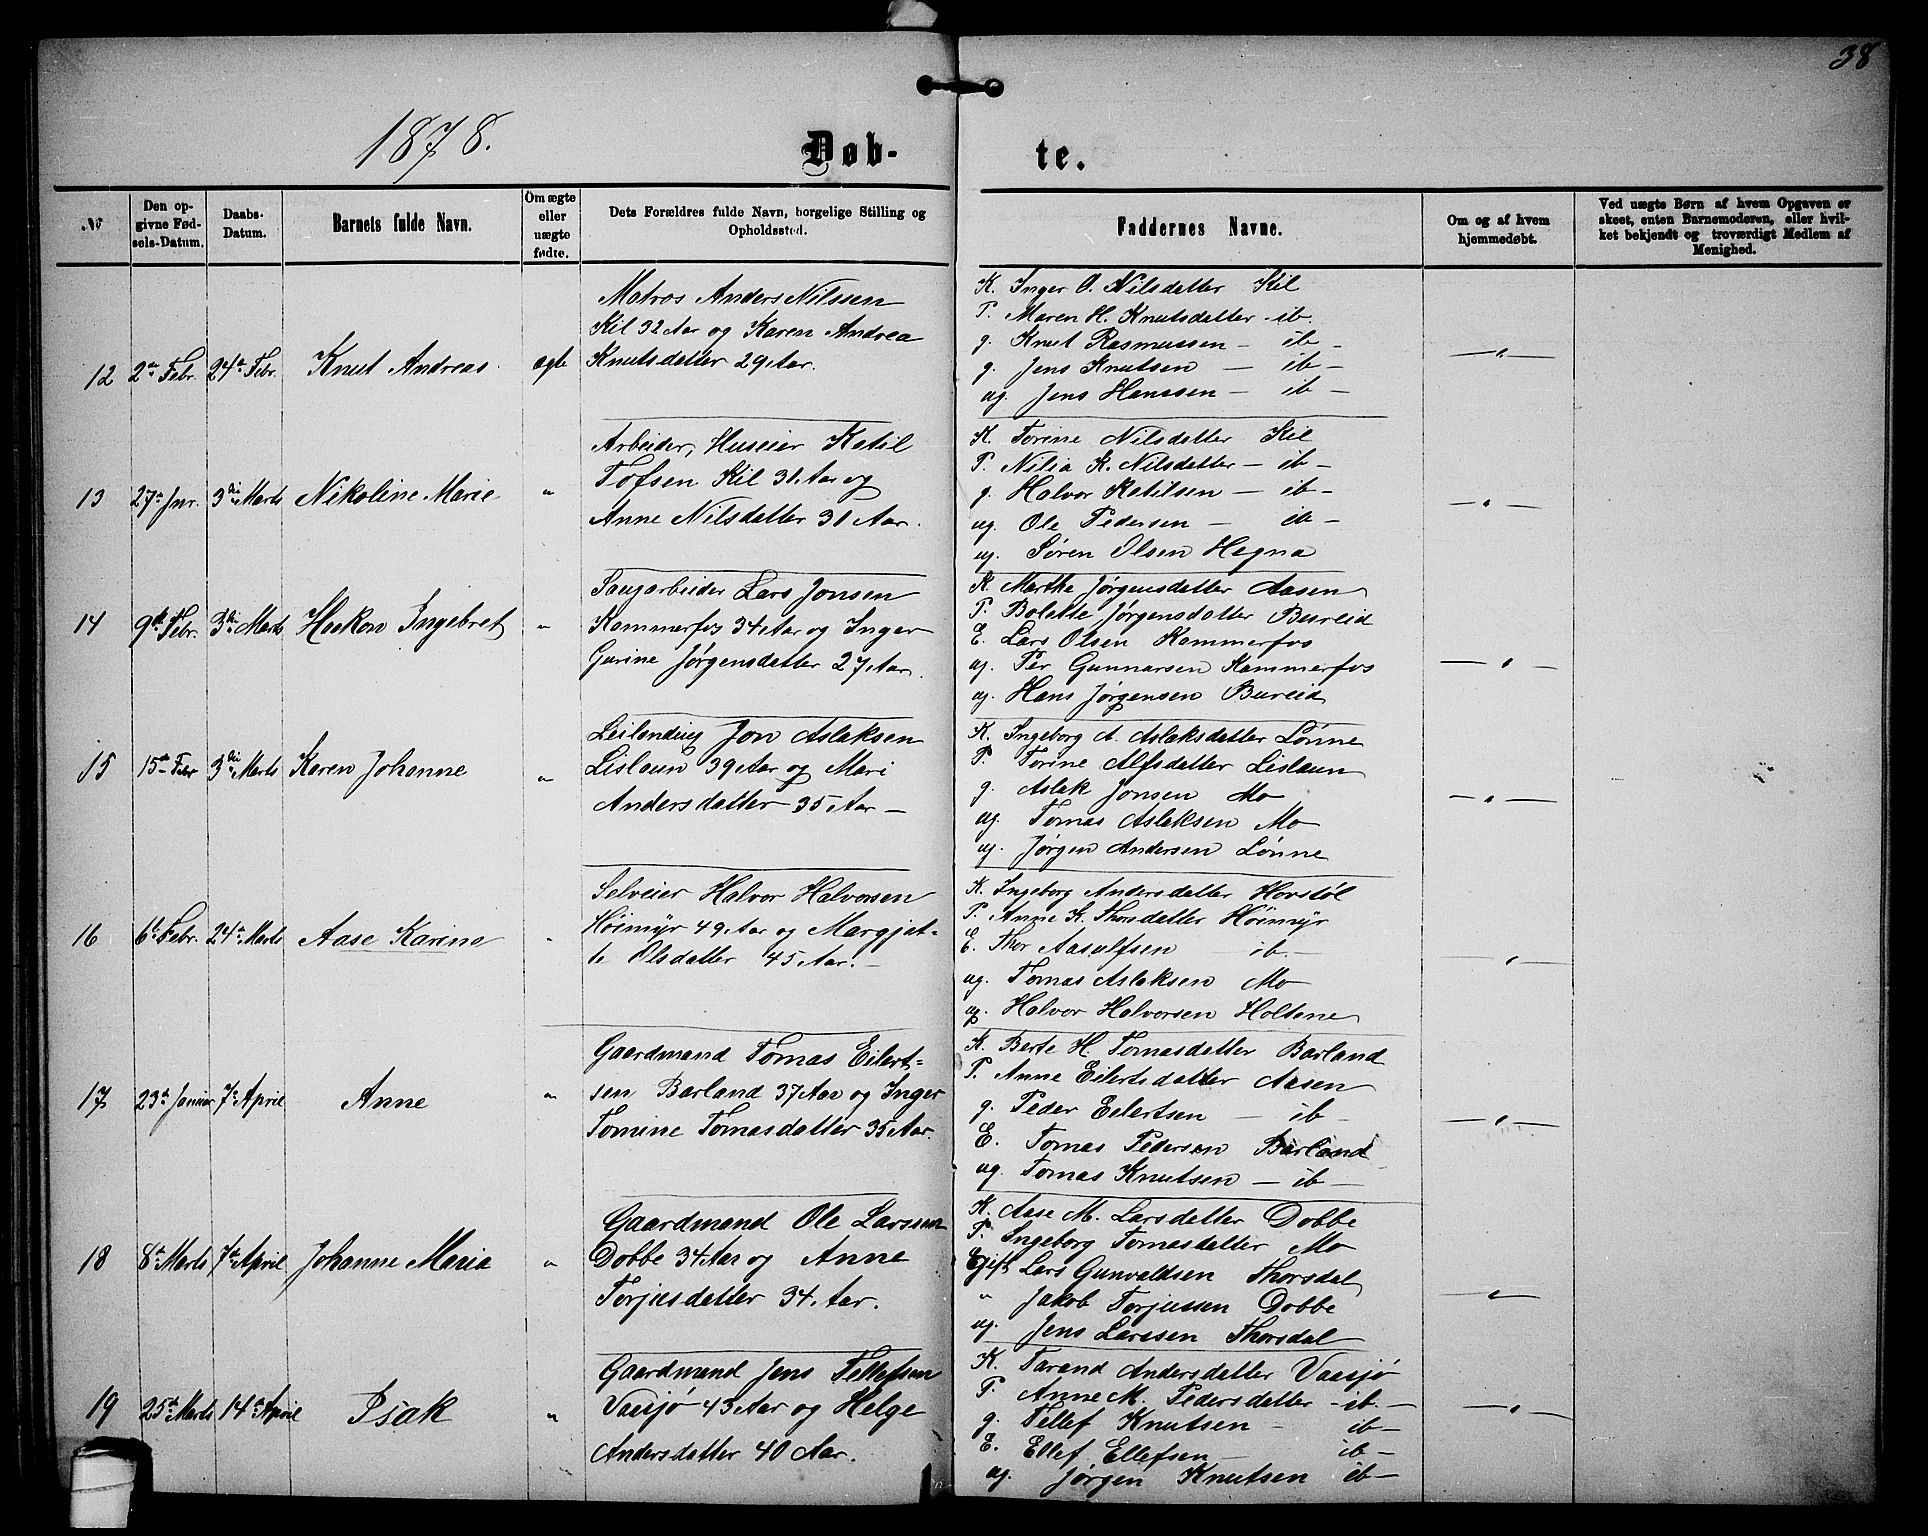 38
1878.
Døb-
te.
№
Den opgivne Fødsels-Datum.
Daabs-Datum.
Barnets fulde Navn.
Om ægte eller uægte fødte.
Dets Forældres fulde Navn, borgelige Stilling og Opholdssted.
Faddernes Navne.
Om og af hvem hjemmedøbt.
Ved uægte Børn af hvem Opgaven er skeet, enten Barnemoderen, eller hvilket bekjendt og troværdigt Medlem af Menighed.
12 2de Febr. 24de Febr. Knut Andreas. ægte
Matros Anders Nilssen
Kil 32 Aar og Karen Andrea
Knutsdatter 29 Aar.
K. Inger O. Nilsdatter Kil
P. Maren H. Knutsdatter - ib.
g. Knut Rasmussen - ib -
g. Jens Knutsen - ib -
ug. Jens Hanssen - ib -
— " —
13 27de Jnr. 3die Marts Nikoline Marie "
Arbeider, Huseier Ketil
Tofsen Kil 31 Aar og
Anne Nilsdatter 31 Aar.
K. Torine Nilsdatter Kil
P. Nilia K. Nilsdatter - ib -
g. Halvor Ketilsen - ib -
ug. Ole Pedersen - ib -
ug. Søren Olsen Hegna
— " —
14 9de Febr. 3die Marts Haakon Ingebret "
Saugarbeider Lars Jonsen
Kammerfos 34 Aar og Inger
Gurine Jørgensdatter 27 Aar.
K. Marthe Jørgensdatter Aasen
P. Bolette Jørgensdatter Bureid
E. Lars Olsen Kammerfos
ug. Per Gunnarsen Kammerfos
ug. Hans Jørgensen Bureid
— " —
15 15de Febr 3die Marts Karen Johanne "
Leilending Jon Aslaksen
Lislaun 39 Aar og Mari
Andersdatter 35 Aar -
K. Ingeborg A. Aslaksdatter Lønne
P. Torine Alfsdatter Lislaun
g. Aslak Jonsen Mo
ug. Tomas Aslaksen Mo
ug. Jørgen Andersen Lønne
— " —
16 6te Febr. 24de Marts Aase Karine "
Selveier Halvor Halvorsen
Høimyr 49 Aar og Margjit-
te Olsdatter 45 Aar. -
K. Ingeborg Andersdatter Hovstøl
P. Anne K. Thorsdatter Høimyr
E. Thor Aasulfsen ib. -
ug. Tomas Aslaksen Mo
ug. Halvor Halvorsen Holtane
— " —
17 23de Januar 7de April Anne "
Gaardmand Tomas Eilert-
sen Barland 37 Aar og Inger
Tomine Tomasdatter 35 Aar.
K. Berte H. Tomasdatter Barland
P. Anne Eilertsdatter Aasen
g. Peder Eilertsen - ib -
E. Tomas Pedersen Barland
ug. Tomas Knutsen - ib -
— " —
18 8de Marts 7de April Johanne Maria "
Gaardmand Ole Larssen
Dobbe 34 Aar og Anne
Torjusdatter 34 Aar.
K. Aase M. Larsdatter Dobbe
P. Ingeborg Tomasdatter Mo
Gift Lars Gunvaldsen Thorsdal
" Jakob Torjussen Dobbe
ug. Jens Larssen Thorsdal
— " —
19 25de Marts 14de April Isak "
Gaardmand Jens Tellefsen
Vasjø 43 Aar og Helge
Andersdatter 40 Aar.
K. Tarand Andersdatter Vasjø
P. Anne M. Pedersdatter - ib. -
g. Tellef Knutsen - ib -
E. Ellef Ellefsen - ib -
ug. Jørgen Knutsen ib -
— " —